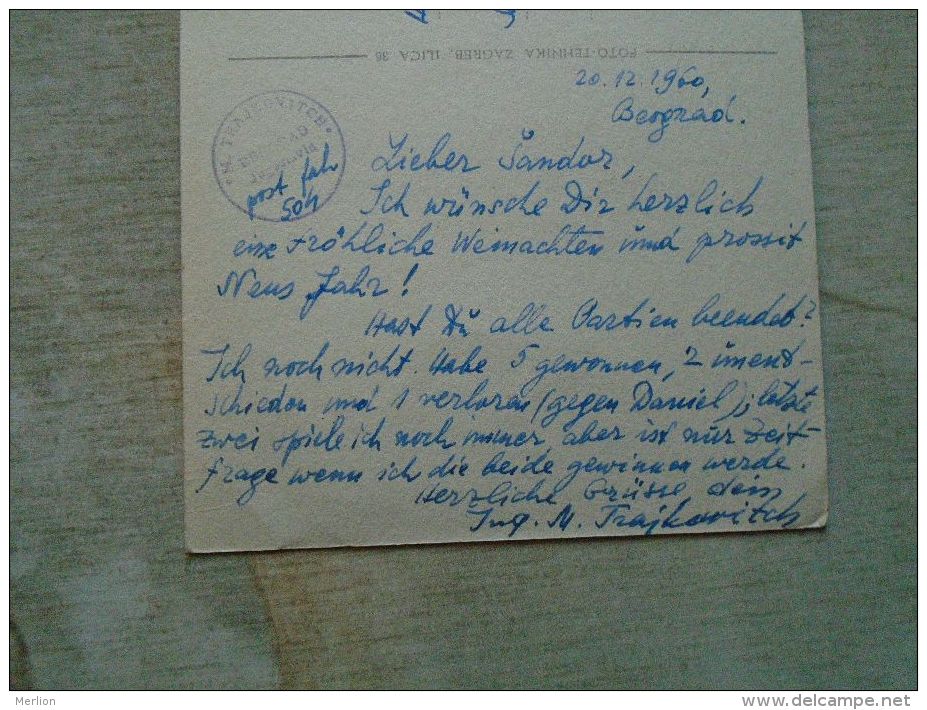 FOTO-TEHNIKA ZAGREB, ILICA 36
20.12.1960,
Beograd.
"M. TRAJKOVITCH"
post fah
504
Lieber Šandor,
Ich wünsche Dir herzlich
eine fröhliche Weinachten und prossit
Neus Jahr!
Hast Du alle Partien beendet?
Ich noch nicht. Habe 5 gewonnen, 2 unent-
schieden und 1 verloren (gegen Daniel); letzte
zwei spiele ich noch immer aber ist nur Zeit-
frage wenn ich die beide gewinnen werde.
Herzliche Grüsse dein
Ing. M. Trajkovitch
Merlion
www.delcampe.net